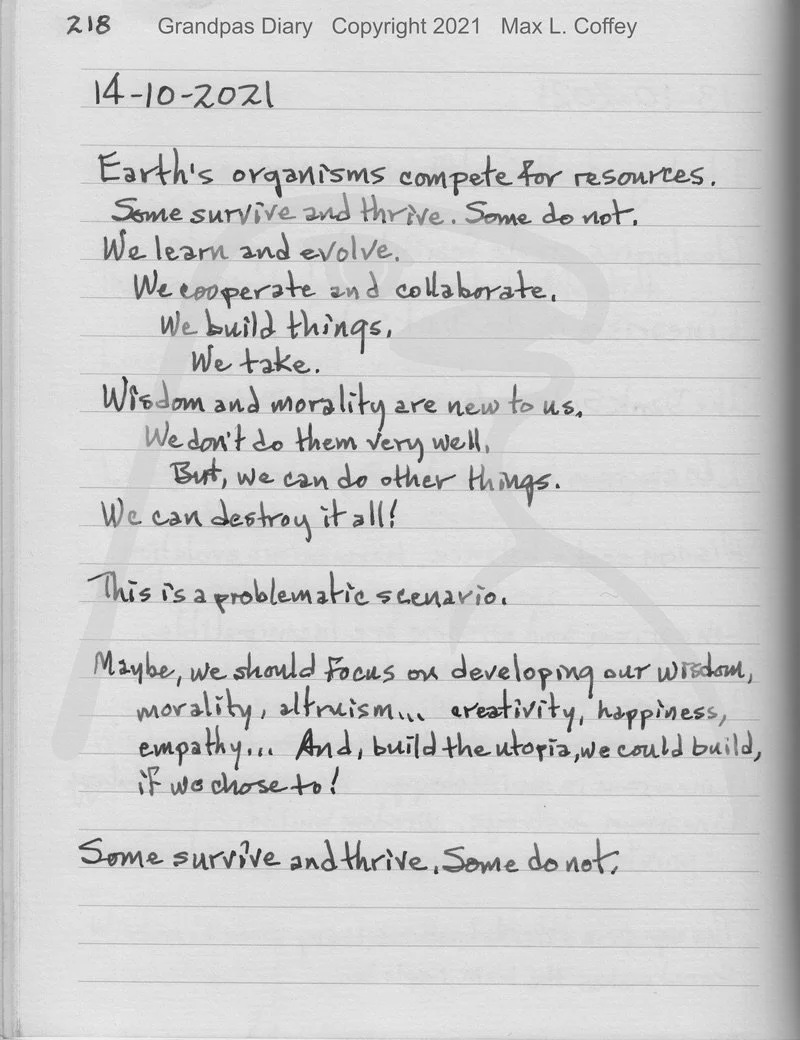 218 Grandpas Diary Copyright 2021 Max L. Coffey
14-10-2021
Earth's organisms compete for resources.
Some survive and thrive. Some do not.
We learn and evolve.
We cooperate and collaborate.
We build things.
We take.
Wisdom and morality are new to us.
We don't do them very well.
But, we can do other things.
We can destroy it all!
This is a problematic scenario.
Maybe, we should focus on developing our wisdom,
morality, altruism... creativity, happiness,
empathy... And, build the utopia, we could build,
if we chose to!
Some survive and thrive. Some do not.